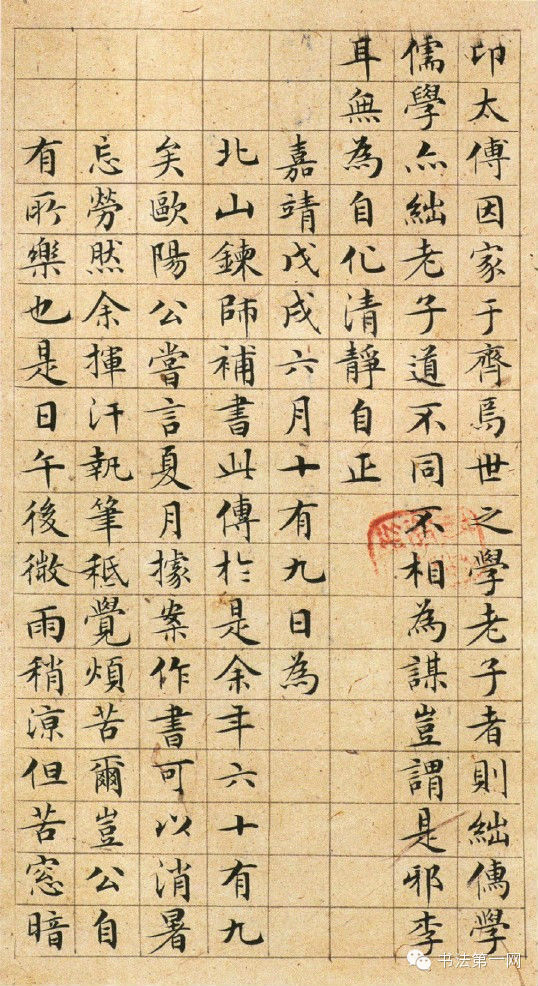 卬太傅因家于齊焉世之學老子者則絀儒學
儒學亦絀老子道不同不相為謀豈謂是邪李
耳無為自化清靜自正
嘉靖戊戌六月十有九日為
北山鍊師補書此傳於是余年六十有九
矣歐陽公嘗言夏月據案作書可以消暑
忘勞然余揮汗執筆秪覺煩苦爾豈公自
有所樂也是日午後微雨稍涼但苦窓暗
书法第一网